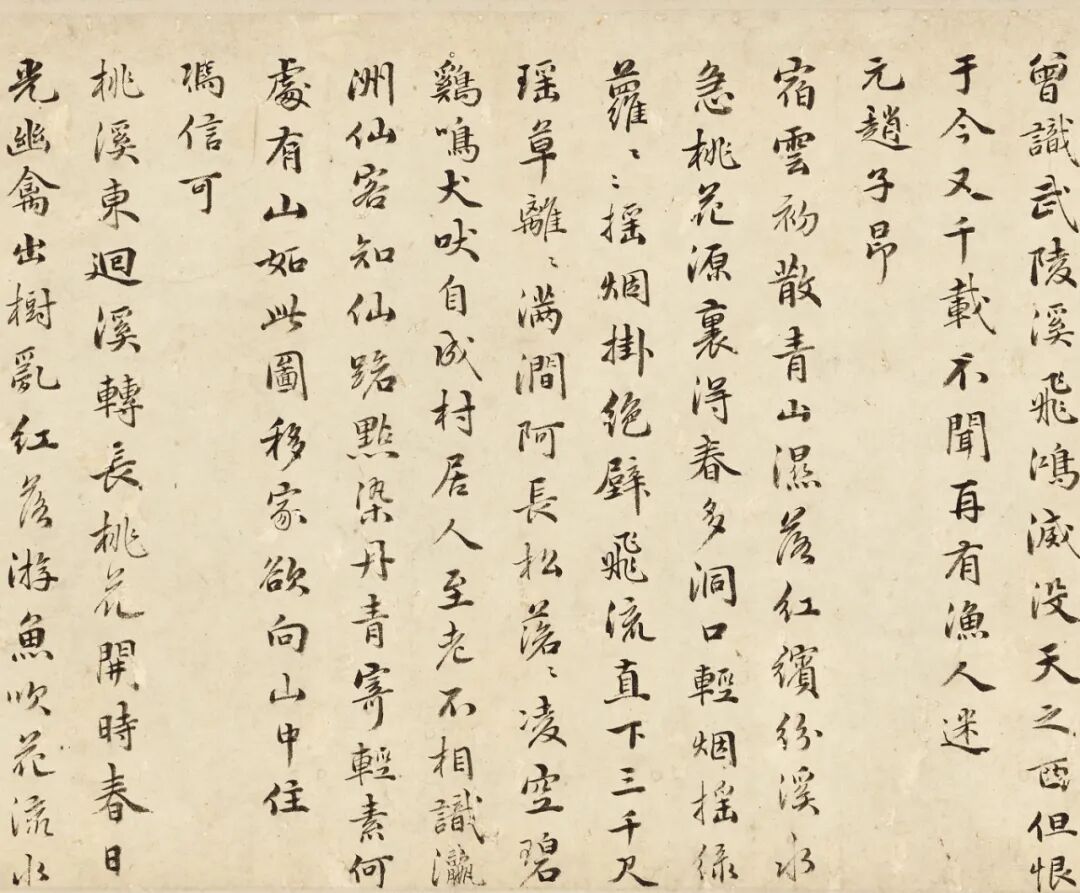 曾識武陵溪飛鴻滅没天之西但恨
于今又千載不聞再有漁人迷
元趙子昂
宿雲初散青山濕落紅繽紛溪水
急桃花源裏得春多洞口輕烟摇緑
蘿〻〻摇烟掛绝壁飛流直下三千尺
瑶草離〻满澗阿長松落〻凌空碧
鷄鳴犬吠自成村居人至老不相識瀛
洲仙客知仙路點染丹青寄輕素何
處有山如此圖移家欲向山中住
馮信可
桃溪東迴溪轉長桃花開時春日
光幽禽出樹亂红落游魚吹花流水